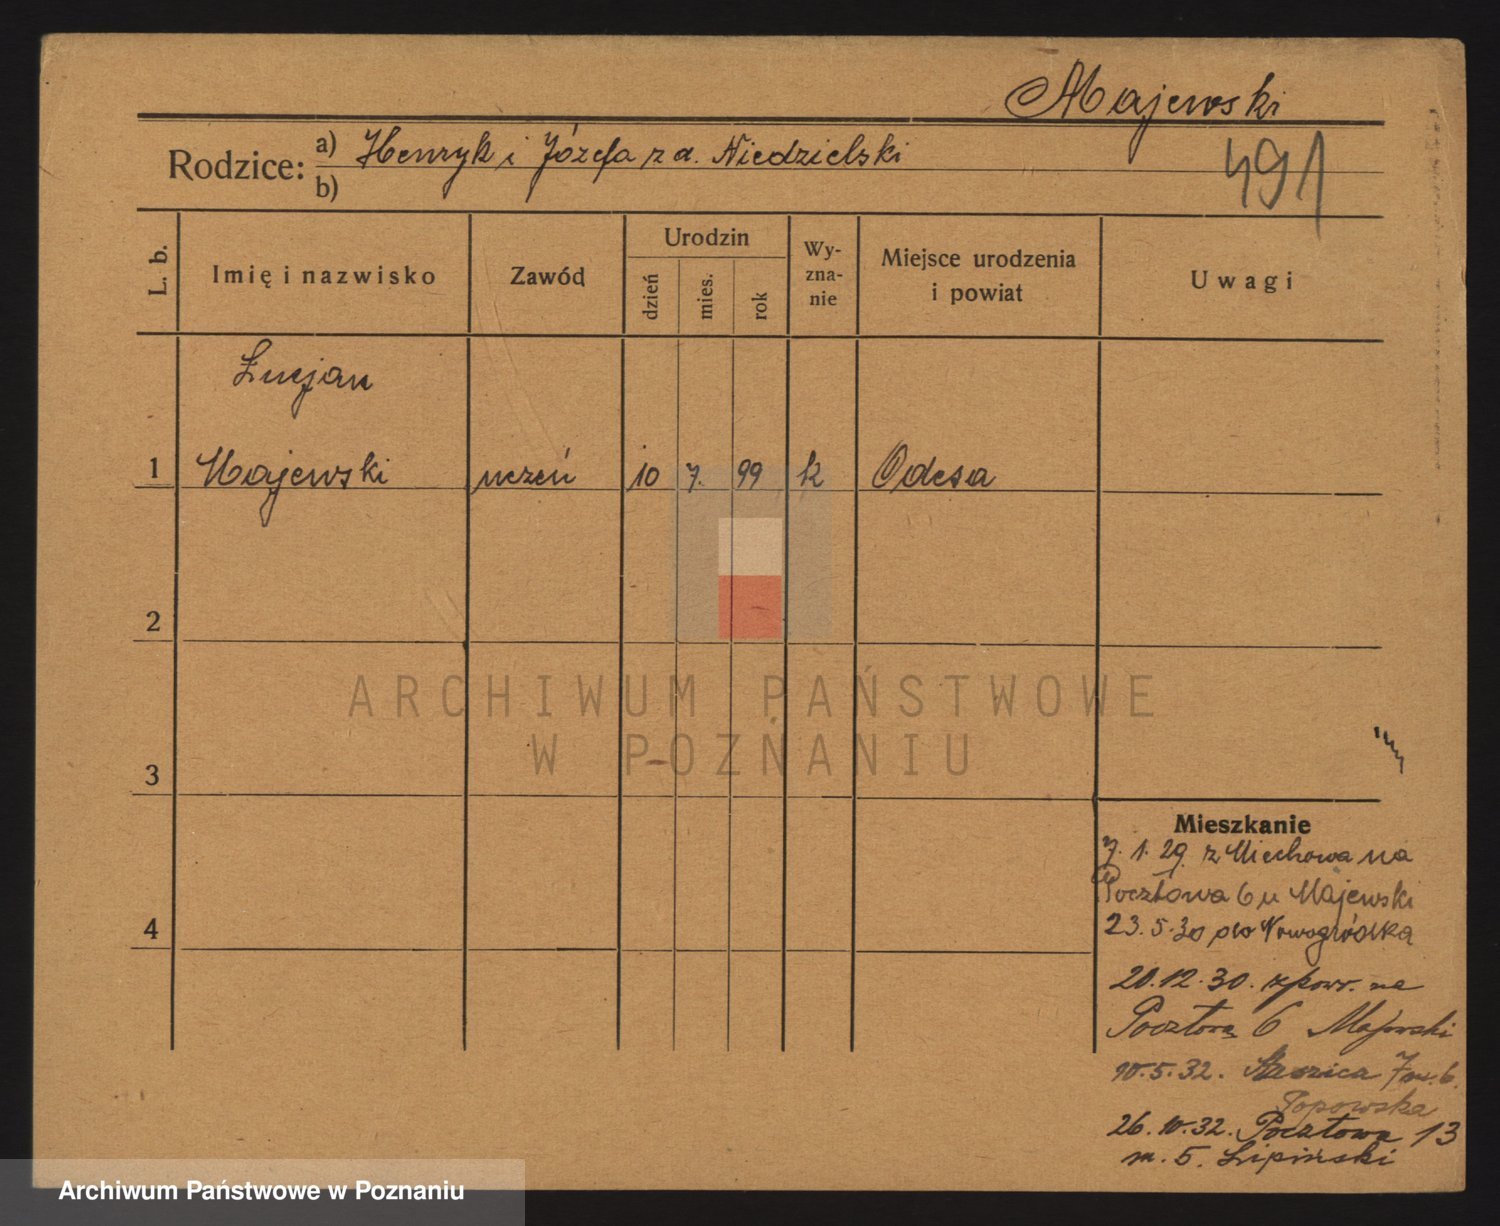 Majewski
Rodzice: a) Henryk i Józefa z d. Niedzielski
b)
491
L. b.
Imię i nazwisko
Zawód
Urodzin
dzień
mies.
rok
Wy-
zna-
nie
Miejsce urodzenia
i powiat
Uwagi
Łucjan
1 Majewski uczeń 10 7. 99 k Odesa
2
3
4
ARCHIWUM PAŃSTWOWE
W POZNANIU
Mieszkanie
7. 1. 29. z Miechowa na
Pocztowa 6 u Majewski
23. 5. 30 do Nowogródka
20. 12. 30. z powr. na
Pocztową 6 Majewski
10. 5. 32. 7 m. 6.
Popowska
26. 10. 32. Pocztowa 13
m. 5. Lipiński
Archiwum Państwowe w Poznaniu